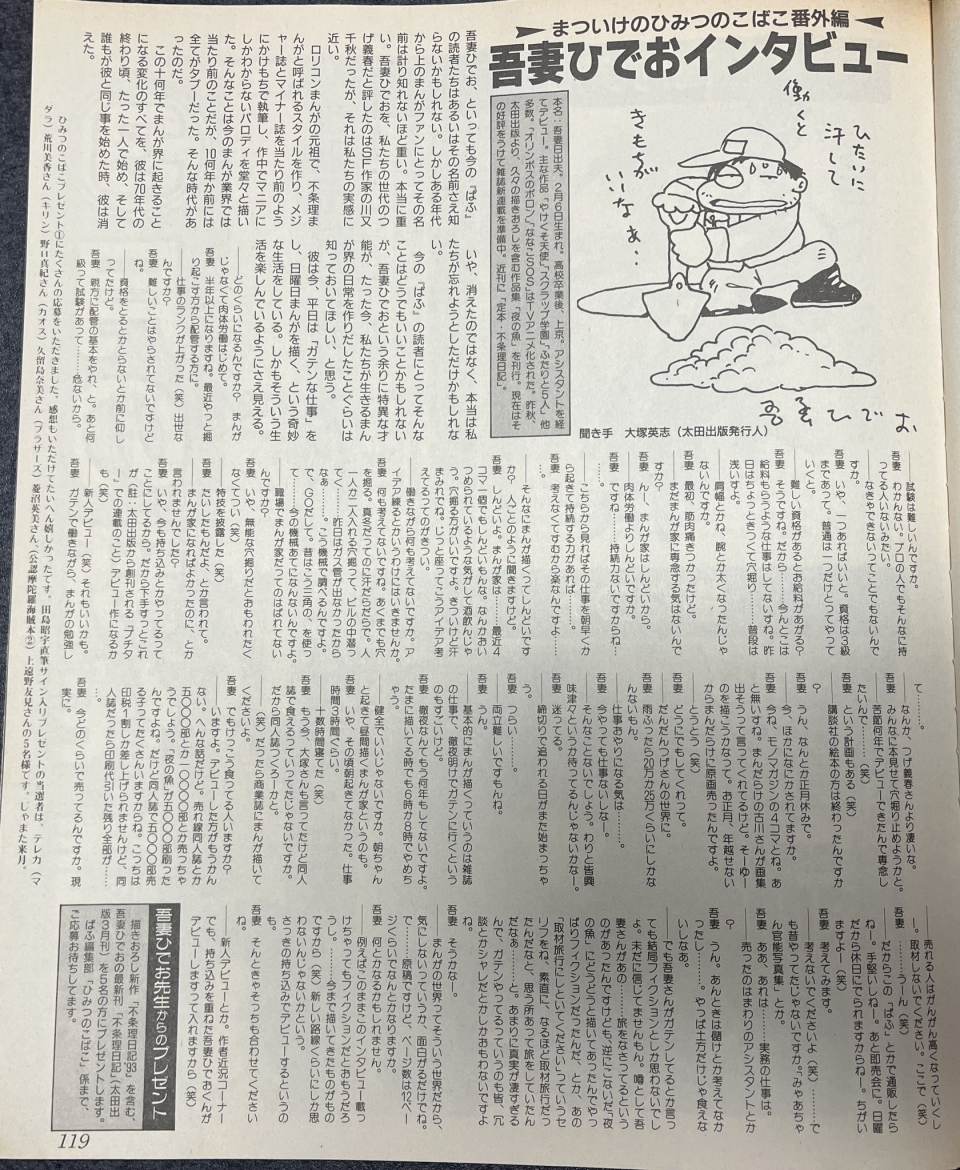 まついけのひみつのこばこ番外編
吾妻ひでおインタビュー
働くと
ひたいに
汗して
きもちが
いいなぁ…
吾妻ひでお
聞き手 大塚英志(太田出版発行人)
本名:吾妻日出夫。2月6日生まれ。高校卒業後、上京。アシスタントを経
てデビュー。主な作品「やけくそ天使」「スクラップ学園」「ふたりと5人」他
多数。「オリンポスのポロン」「ななこSOS」はTVアニメ化された。昨秋、
太田出版より、久々の描きおろしを含む作品集「夜の魚」を刊行。現在はそ
の好評をうけて雑誌新連載を準備中。近刊に「定本・不条理日記」。
吾妻ひでお、といっても今の『ぱふ』
の読者たちはあるいはその名前さえ知
らないかもしれない。しかしある年代
から上のまんがファンにとってその名
前は計り知れないほど重い。本当に重
い。吾妻ひでおを、私たちの世代のつ
げ義春だと評したのはSF作家の川又
千秋だったが、それは私たちの実感に
近い。
ロリコンまんがの元祖で、不条理ま
んがと呼ばれるスタイルを作り、メジ
ャー誌とマイナー誌を当たり前のよう
にかけもちで執筆し、作中でマニアに
しかわからないパロディを堂々と描い
た。そんなことは今のまんが業界では
当たり前のことだが、10何年か前には
全てがタブーだった。そんな時代があ
ったのだ。
この十何年でまんが界に起きること
になる変化のすべてを、彼は70年代の
終わり頃、たった一人で始め、そして
誰もが彼と同じ事を始めた時、彼は消
えた。
いや、消えたのではなく、本当は私
たちが忘れようとしただけかもしれな
い。
今の『ぱふ』の読者にとってそんな
ことはどうでもいいことかもしれない
が、吾妻ひでおという余りに特異な才
能が、たった今、私たちが生きるまん
が界の日常を作りだしたことぐらいは
知っておいてほしい、と思う。
彼は今、平日は「ガテンな仕事」を
し、日曜日まんがを描く、という奇妙
な生活をしている。しかもそういう生
活を楽しんでいるようにさえ見える。
――どのくらいになるんですか? まんが
じゃなくて肉体労働はじめて。
吾妻 半年以上になりますね。最近やっと掘
り起こす方から配管する方に。
――仕事のランクが上がった(笑)出世な
んですか?
吾妻 難しいことはやらされてないですけど
ね。
――資格をとるとかとらないとか前に仰し
ゃってたけど。
吾妻 親方に配管の基本をやれ、と。あと何
級って試験があって……危ないから。
――試験は難しいんですか。
吾妻 わかんない。プロの人でもそんなに持
ってる人いないみたい。
――なきゃできないってことでもないんで
すか。
吾妻 いや、一つあればいいと。資格は3級
まであって。普通は一つだけとってやって
いくと。
――難しい資格があるとお給料があがる?
吾妻 そうですね。だから……今んとこは
給料もらうような仕事はしてないすね。昨
日はちょっときつくて穴掘り……普段は
浅いすよ。
――肩幅とかね、腕とか太くなったんじゃ
ないんですか。
吾妻 最初、筋肉痛きつかったけど。
――まだまんが家に専念する気はないんで
すか?
吾妻 んー、まんが家はしんどいから。
――肉体労働よりしんどいですか。
吾妻 ですね……持続力ないですからね…
…。
――こちらから見ればその仕事を朝早くか
ら起きて持続する力があれば……
吾妻 考えなくてすむから楽なんですよ……
……。
――そんなにまんが描くってしんどいです
か? 人ごとのように聞きますけど。
吾妻 しんどいよ。まんが家は……最近4
コマ一個でもしんどいもんな。なんかおい
つめられているような気がして酒飲んじ
まう。穴掘る方がいいです。きついけど汗
かくし。机の前に座ってこうアイデア考
えてるってのがきつい。
――働きながら何も考えてないですか。ア
イデア練るとかいうわけにはいきませんか。
吾妻 何も考えてないですね。あくまでも穴
を掘る。真冬だってのに汗だらだらで。穴
一人か二人入れる穴掘って、ビルの中潜っ
てく……昨日はガス管が出なかったから
なぁ……。こう機械で調べるんですよ。
で、GOのだして。昔はこう三角の、を使っ
てた……今の機械あてになんないんですよ。
――職場でまんが家だってのはばれてない
んですか?
吾妻 いや、無能な穴掘りだとおもわれたく
なくてつい(笑)
――特技を披露した(笑)
吾妻 たいしたもんだ、とか言われて。
――まんが家になればよかったのに、とか
言われませんでした?
吾妻 いや、今も持ち込みとかやってるって
ことにしてるから。だから下手すっとこれ
が(註・太田出版から創刊される「プチタ
ー」での連載のこと)デビュー作になるか
も(笑)
――新人デビュー(笑)それもいいかも。
吾妻 ガテンで働きながら、まんがの勉強し
て……。
――なんか、つげ義春さんより凄いな。
吾妻 みんなに本見せて穴掘り止めようかと。
苦節何年でデビューできたんで専念し
たいんで……(笑)
――という計画もある(笑)
――講談社の絵本の方は終わったんですか
?
吾妻 うん、なんか正月休みで。
――今、ほかになにかされてますか。
吾妻 今、モノマガジンの4コマとね、あ
と無いすね。まんだらけの古川さんが画集
出そうって言ってくれてるけど。そーゆー
のを描こうかなって。お正月、年越せない
からまんだらけに原画売ったんですよ。
――とうとう(笑)
吾妻 どうにでもしてくれって。
――だんだんつげさんの世界に。
吾妻 雨ふったら20万か8万くらいにしかな
んないもん。
――仕事おやりになる気は……。
吾妻 今やっても仕事ないしなー。
――そんなことないでしょう。わりと皆興
味津々というか待ってるんじゃないかなー。
吾妻 迷ってる。
――締切りで追われる日がまた始まっちゃ
う。
吾妻 つらい……。
――両立難しいですもんね。
吾妻 うん。
――基本的にまんが描くっていうのは雑誌
の仕事で、徹夜明けでガテンに行くという
のもすごいけど。
吾妻 徹夜なんてもう何年もしてないですよ。
たまに描いてる時でも6時か8時でやめち
ゃう。
――健全でいいじゃないですか。朝ちゃん
と起きて昼間描くまんが家というのも。
吾妻 いや、その頃朝起きてなかった。仕事
時間3時間ぐらい。
――十数時間寝てた(笑)
吾妻 もう今、大塚さんも言ってたけど同人
誌で食えるっていってたじゃないですか。
だから同人誌つくろーかと。
――(笑)だったら商業誌にまんが描いて
くださいよ。
吾妻 でもけっこう食ってる人いますか?
――いますよ。デビューした方がもうかん
ない。へんな話だけど。売れ線同人誌とか
五〇〇〇部とか一〇〇〇〇部とか売っちゃ
うでしょう。『夜の魚』が五〇〇〇部刷った
んですよね。だけど同人誌で五〇〇〇部売
る子ってたくさんいますからね。こっちは
印税1割しか差し上げられませんけど、同
人誌だったら印刷代引いた残り全部が…
…。
吾妻 今どのくらいで売ってるんですか。現
実に。
――売れる人はがんがん高くなっていくし
ー。取材しないでください。ここで(笑)
吾妻 ……うーん(笑)
――だからここの『ぱふ』とかで通販したら
ねー。手堅いしね。あと即売会に。日曜
だから休日にでられますからねー。ちがい
ますよー(笑)
吾妻 考えてみます。
――考えないでくださいよ(笑)……で
も昔やってたじゃないですか。「みゃあちゃ
ん官能写真集」とか。
吾妻 ああ、あれは……実務の仕事は。
――売ったのはまわりのアシスタントとか
?
吾妻 うん。あんときは儲けとか考えてなか
ったし……。やっぱ土方だけじゃ食えな
いしなあ。
――でも吾妻さんがガテンしてるとか言っ
ても結局フィクションとしか思わないでし
ょ。未だに信じてませんもん。噂として吾
妻さんがあの……旅をなさってるという
のがあったんですけども、逆にこないだ、『夜
の魚』にどうどうと描いてあったんでやっ
ぱりフィクションだったんだ、とか、あの
「取材旅行にしといてください」っていうセ
リフをね、素直に、なるほど取材旅行だっ
たんだなと。思う所あって旅をしていたん
だなあ、と。あまりに真実が凄すぎる
んで、ガテンやってるっていうのも皆、冗
談とかシャレしだとかしかおもわないですよ
ね。
吾妻 そうかなー。
――まんがの世界ってそういう世界だから、
気にしないっていうか、面白がるだけでね。
で……原稿ですけど、ページ数は12ペー
ジくらいでなんとかなりますか。
吾妻 何とかなるかもしれません。
――例えばこのままこのインタビュー載っ
けちゃってもフィクションだとおもうだろ
うし。……今まで描いてきたものがもの
ですから(笑)新しい路線くらいにしか思
わないんじゃないかという。
――さっきの持ち込みでデビューするという
のも。
吾妻 そんときゃそっちも合わせてください
ね。
――新人デビューとか。作者近況コーナー
でも、持ち込みを重ねた吾妻ひでおくんが
デビューしますって入れますから(笑)
吾妻ひでお先生からのプレゼント
描きおろし新作「不条理日記'93」を含む、
吾妻ひでおの最新刊『不条理日記』(太田出
版3月刊)を5名の方にプレゼントします。
ぱふ編集部「ひみつのこばこ」係まで、
ご応募お待ちしてます。
ひみつのこばこプレゼント①にたくさんの応募をいただきました。感想もいただけてたいへん嬉しかったです。田島昭宇直筆サイン入りプレゼントの当選者は、テレカ(マ
ダラ)荒川美香さん(キリン)野口真紀さん(カオス)久留島奈美さん(ブラザーズ)菱沼英美さん、(公認摩陀羅海賊本②)上遠野友見さんの5名様です。じゃまた来月。
119